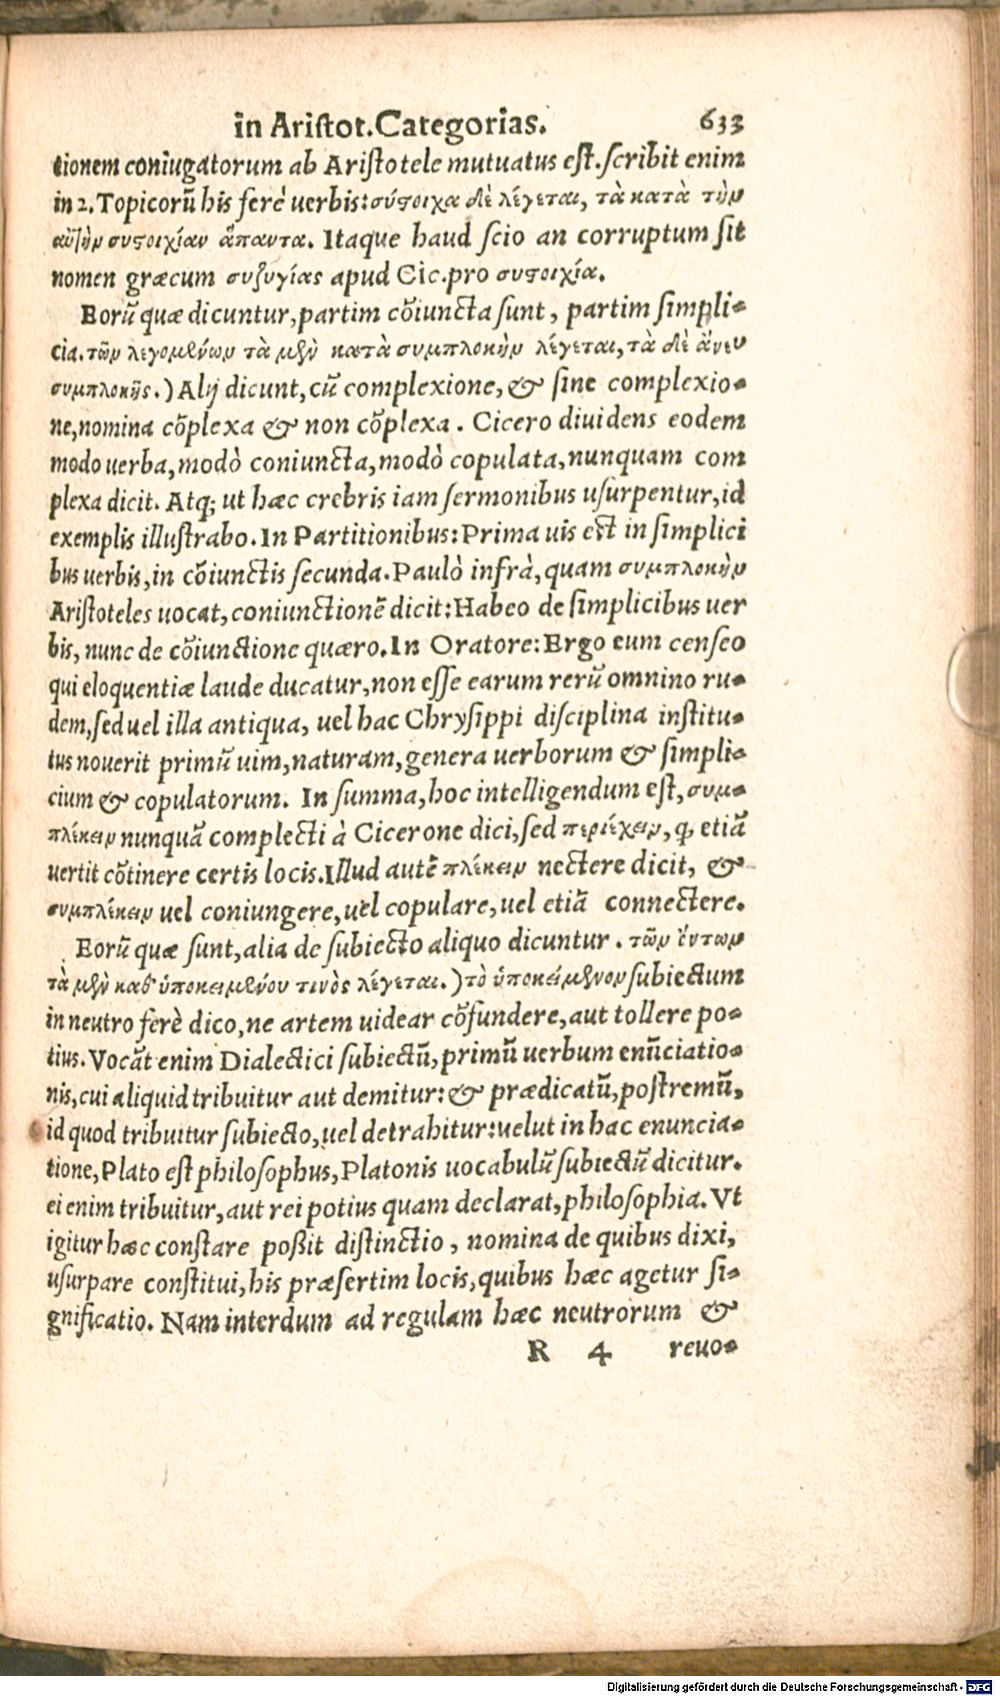 in Aristot. Categorias. 633
tionem coniugatorum ab Aristotele mutuatus est. scribit enim
in 2. Topicorũ his ferè uerbis: σύςοιχα δὲ λέγεται, τὰ κατὰ τὴν
αὐτὴν συςοιχίαν ἅπαντα. Itaque haud scio an corruptum sit
nomen græcum συζυγίας apud Cic. pro συςοιχία.
Eorũ quæ dicuntur, partim cõiuncta sunt, partim simpli-
cia. τῶν λεγομένων τὰ μὲν κατὰ συμπλοκὴν λέγεται, τὰ δὲ ἄνευ
συμπλοκῆς.) Alij dicunt, cũ complexione, & sine complexio-
ne, nomina cõplexa & non cõplexa. Cicero diuidens eodem
modo uerba, modò coniuncta, modò copulata, nunquam com
plexa dicit. Atq; ut hæc crebris iam sermonibus usurpentur, id
exemplis illustrabo. In Partitionibus: Prima uis est in simplici
bus uerbis, in cõiunctis secunda. Paulò infrà, quam συμπλοκὴν
Aristoteles uocat, coniunctionẽ dicit: Habeo de simplicibus uer
bis, nunc de cõiunctione quæro. In Oratore: Ergo eum censeo
qui eloquentiæ laude ducatur, non esse earum rerũ omnino ru-
dem, sed uel illa antiqua, uel hac Chrysippi disciplina institu-
tus nouerit primũ uim, naturam, genera uerborum & simpli-
cium & copulatorum. In summa, hoc intelligendum est, συμ-
πλέκειν nunquã complecti à Cicerone dici, sed περιέχειν, q̃ etiã
uertit cõtinere certis locis. Illud autẽ πλέκειν nectere dicit, &
συμπλέκειν uel coniungere, uel copulare, uel etiã connectere.
Eorũ quæ sunt, alia de subiecto aliquo dicuntur. τῶν ὄντων
τὰ μὲν καθ' ὑποκειμένου τινὸς λέγεται.) τὸ ὑποκείμενον subiectum
in neutro ferè dico, ne artem uidear cõfundere, aut tollere po-
tius. Vocãt enim Dialectici subiectũ, primũ uerbum enũciatio-
nis, cui aliquid tribuitur aut demitur: & prædicatũ, postremũ,
id quod tribuitur subiecto, uel detrahitur: uelut in hac enuncia-
tione, Plato est philosophus, Platonis uocabulũ subiectũ dicitur.
ei enim tribuitur, aut rei potius quam declarat, philosophia. Vt
igitur hæc constare poßit distinctio, nomina de quibus dixi,
usurpare constitui, his præsertim locis, quibus hæc agetur si-
gnificatio. Nam interdum ad regulam hæc neutrorum &
R 4 reuo-
Digitalisierung gefördert durch die Deutsche Forschungsgemeinschaft - DFG